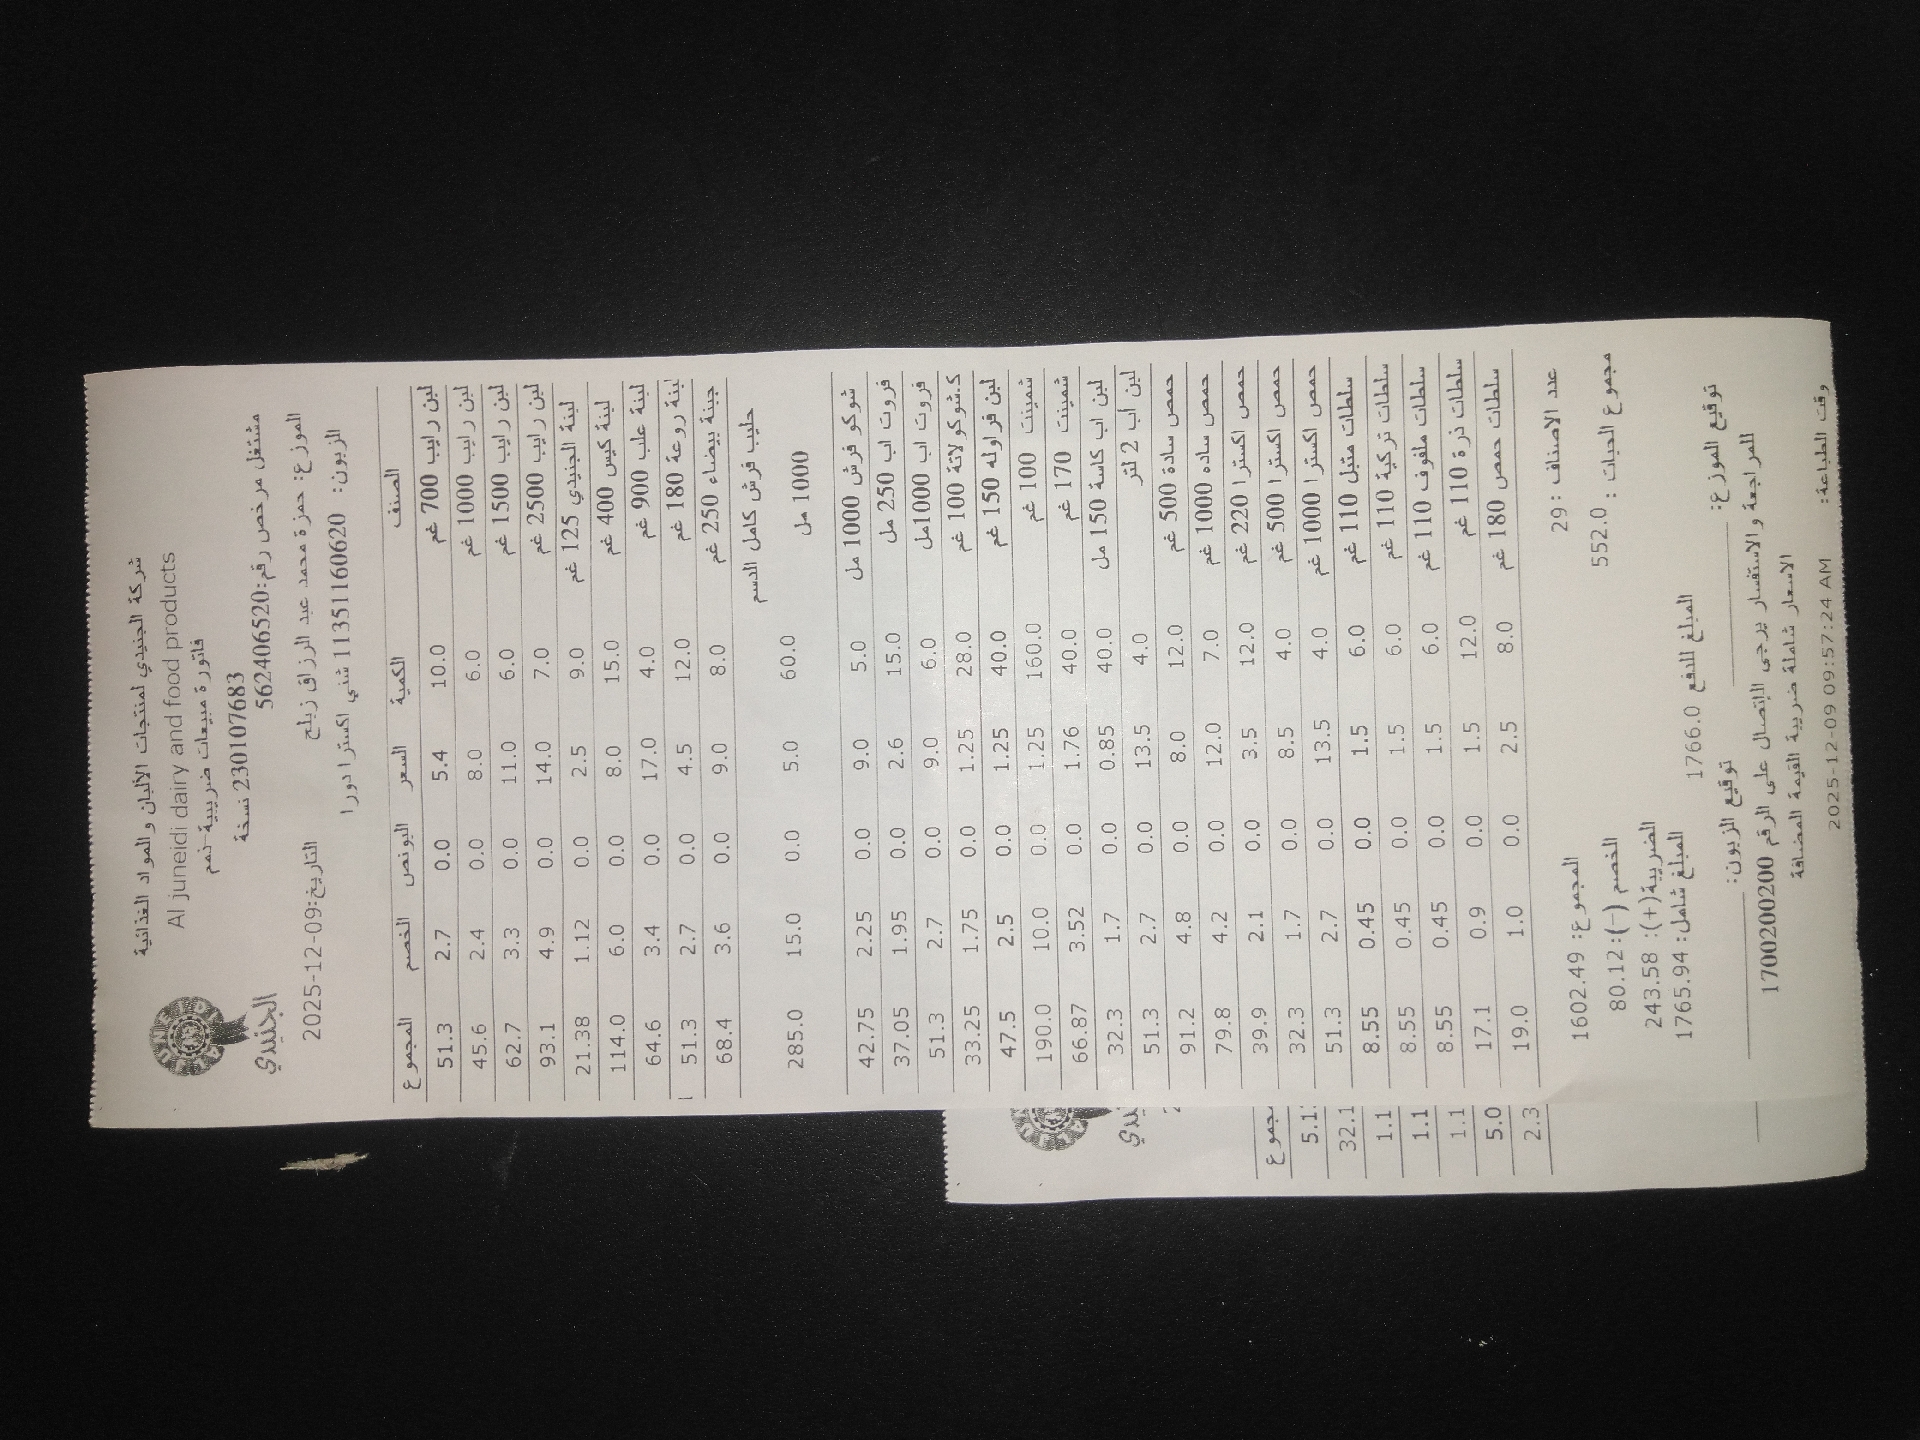 شركة الجنيدي لمنتجات الألبان والمواد الغذائية
Al juneidi dairy and food products
فاتورة مبيعات ضريبية-ذمم
230107683 نسخة
مشتغل مرخص رقم:562406520
الجنيدي
الموزع: حمزة محمد عبد الرزاق زبلح التاريخ:2025-12-09
الزبون: 11351160620 شني اكسترا دورا
الصنف الكمية السعر البونص الخصم المجموع
لبن رايب 700 غم 10.0 5.4 0.0 2.7 51.3
لبن رايب 1000 غم 6.0 8.0 0.0 2.4 45.6
لبن رايب 1500 غم 6.0 11.0 0.0 3.3 62.7
لبن رايب 2500 غم 7.0 14.0 0.0 4.9 93.1
لبنة الجنيدي 125 غم 9.0 2.5 0.0 1.12 21.38
لبنة كيس 400 غم 15.0 8.0 0.0 6.0 114.0
لبنة علب 900 غم 4.0 17.0 0.0 3.4 64.6
لبنة روعة 180 غم 12.0 4.5 0.0 2.7 51.3
جبنة بيضاء 250 غم 8.0 9.0 0.0 3.6 68.4
حليب فرش كامل الدسم
1000 مل 60.0 5.0 0.0 15.0 285.0
شوكو فرش 1000 مل 5.0 9.0 0.0 2.25 42.75
فروت اب 250 مل 15.0 2.6 0.0 1.95 37.05
فروت اب 1000مل 6.0 9.0 0.0 2.7 51.3
ك.شوكولاتة 100 غم 28.0 1.25 0.0 1.75 33.25
لبن فراوله 150 غم 40.0 1.25 0.0 2.5 47.5
شمينت 100 غم 160.0 1.25 0.0 10.0 190.0
شمينت 170 غم 40.0 1.76 0.0 3.52 66.87
لبن اب كاسة 150 مل 40.0 0.85 0.0 1.7 32.3
لبن اب 2 لتر 4.0 13.5 0.0 2.7 51.3
حمص سادة 500 غم 12.0 8.0 0.0 4.8 91.2
حمص ساده 1000 غم 7.0 12.0 0.0 4.2 79.8
حمص اكسترا 220 غم 12.0 3.5 0.0 2.1 39.9
حمص اكسترا 500 غم 4.0 8.5 0.0 1.7 32.3
حمص اكسترا 1000 غم 4.0 13.5 0.0 2.7 51.3
سلطات متبل 110 غم 6.0 1.5 0.0 0.45 8.55
سلطات تركية 110 غم 6.0 1.5 0.0 0.45 8.55
سلطات ملفوف 110 غم 6.0 1.5 0.0 0.45 8.55
سلطات ذرة 110 غم 12.0 1.5 0.0 0.9 17.1
سلطات حمص 180 غم 8.0 2.5 0.0 1.0 19.0
عدد الاصناف :29 المجموع: 1602.49
مجموع الحبات : 552.0 الخصم (-): 80.12
الضريبة(+): 243.58
المبلغ شامل: 1765.94
المبلغ للدفع 1766.0
توقيع الموزع: توقيع الزبون:
للمراجعة والاستفسار يرجى الإتصال على الرقم 1700200200
الاسعار شاملة ضريبة القيمة المضافة
وقت الطباعة: 2025-12-09 09:57:24 AM
5.1
32.1
1.1
1.1
1.1
5.0
2.3